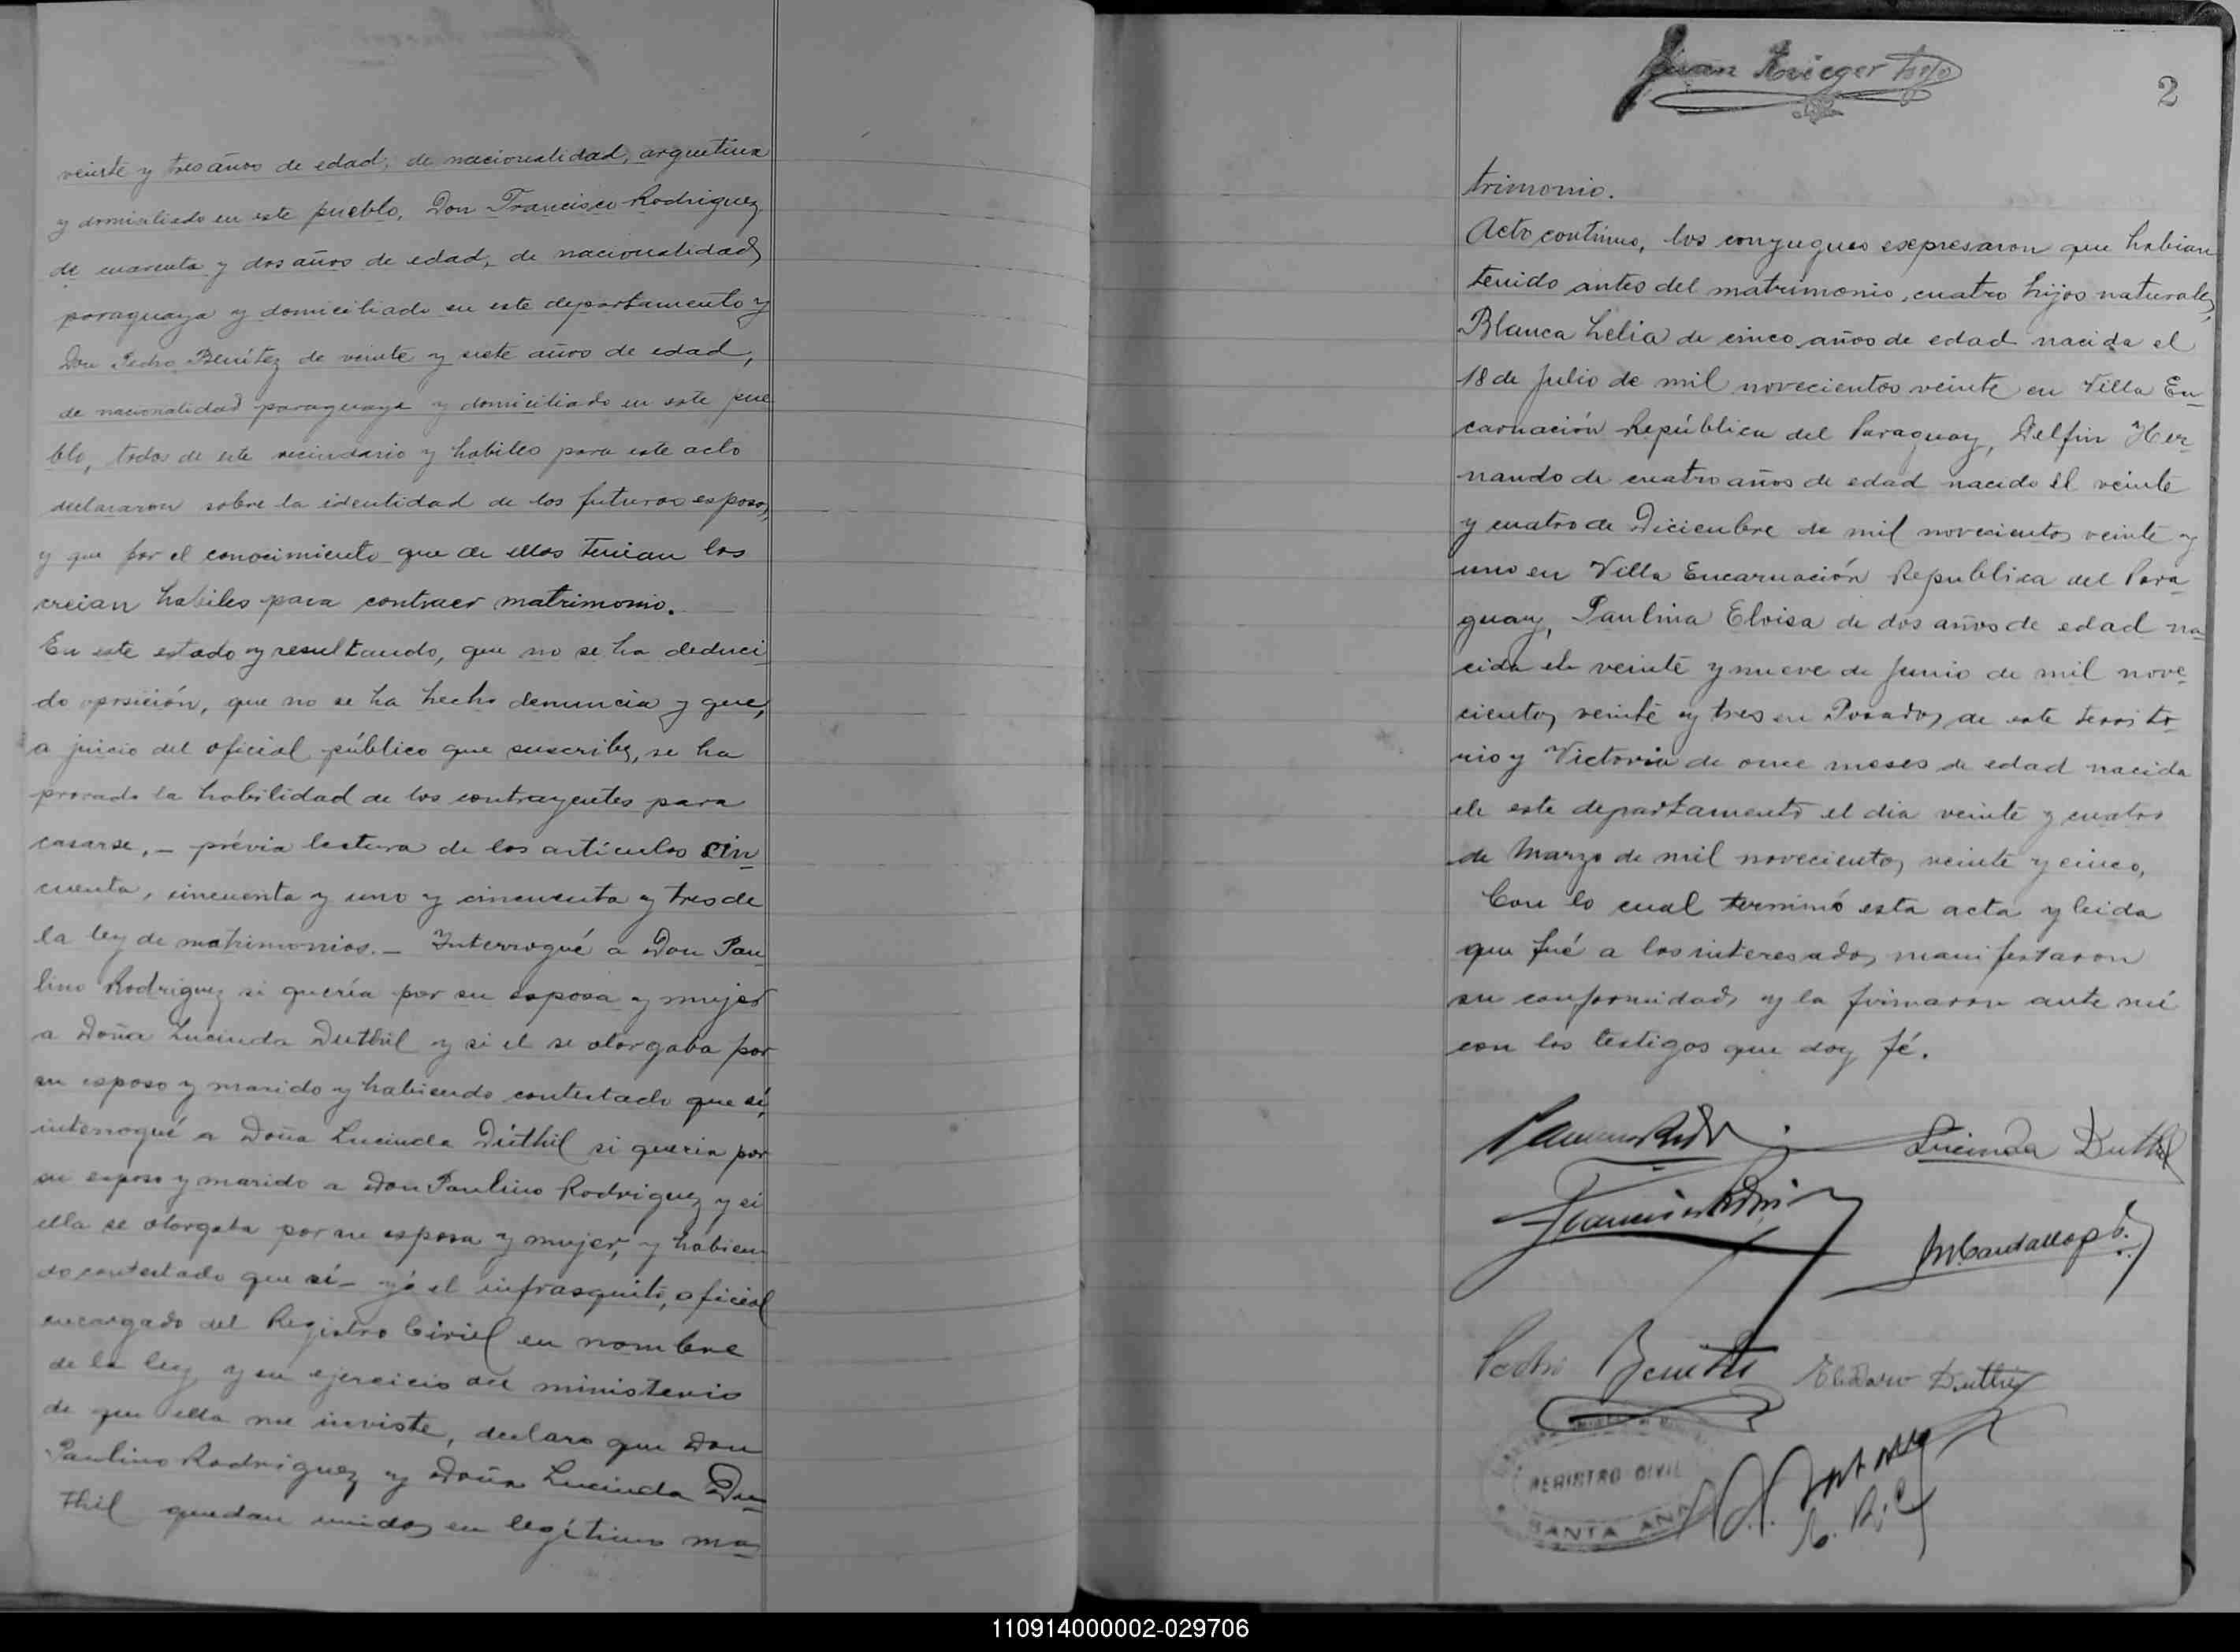 veinte y tres años de edad, de nacionalidad, argentina
y domiciliado en este pueblo, Don Francisco Rodriguez
de cuarenta y dos años de edad, de nacionalidad
paraguaya y domiciliado en este departamento y
Don Pedro Benítez de veinte y siete años de edad,
de nacionalidad paraguaya y domiciliado en este pue
blo, todos de este vecindario y habiles para este acto
declararon sobre la identidad de los futuros esposos,
y que por el conocimiento que de ellos tenian los
creian habiles para contraer matrimonio.
En este estado y resultando, que no se ha deduci-
do oposición, que no se ha hecho denuncia y que,
a juicio del oficial público que suscribe, se ha
provado la habilidad de los contrayentes para
casarse, - prévia lectura de los artículos cin-
cuenta, cincuenta y uno y cincuenta y tres de
la ley de matrimonios. - Interrogué a Don Pau-
lino Rodriguez si quería por su esposa y mujer
a Doña Lucinda Duthil y si el se otorgaba por
su esposo y marido y habiendo contestado que sí,
interrogué a Doña Lucinda Duthil si queria por
su esposo y marido a Don Paulino Rodriguez y si
ella se otorgaba por su esposa y mujer, y habien-
do contestado que sí - yó el infrasquito, oficial
encargado del Registro Civil en nombre
de la ley y en ejercicio del ministerio
de que ella me inviste, declaro que Don
Paulino Rodriguez y Doña Lucinda Du-
thil quedan unidos en legítimo ma-
Juan Krieger hijo
2
trimonio.
Acto continuo, los conyugues expresaron que habian
tenido antes del matrimonio, cuatro hijos naturales,
Blanca Lelia de cinco años de edad nacida el
18 de Julio de mil novecientos veinte en Villa En-
carnación República del Paraguay, Delfin Her-
nando de cuatro años de edad nacido el veinte
y cuatro de Diciembre de mil novecientos veinte y
uno en Villa Encarnación Republica del Para-
guay, Paulina Eloisa de dos años de edad na
cida el veinte y nueve de Junio de mil nove-
cientos veinte y tres en Posadas de este territo-
rio y Victoria de once meses de edad nacida
en este departamento el dia veinte y cuatro
de Marzo de mil novecientos veinte y cinco,
Con lo cual terminó esta acta y leida
que fué a los interesados manifestaron
su conformidad y la firmaron ante mí
con los testigos que doy fé.
Lucinda Duthil
Pedro Benitez
Duthil
REGISTRO CIVIL
SANTA ANA
110914000002-029706